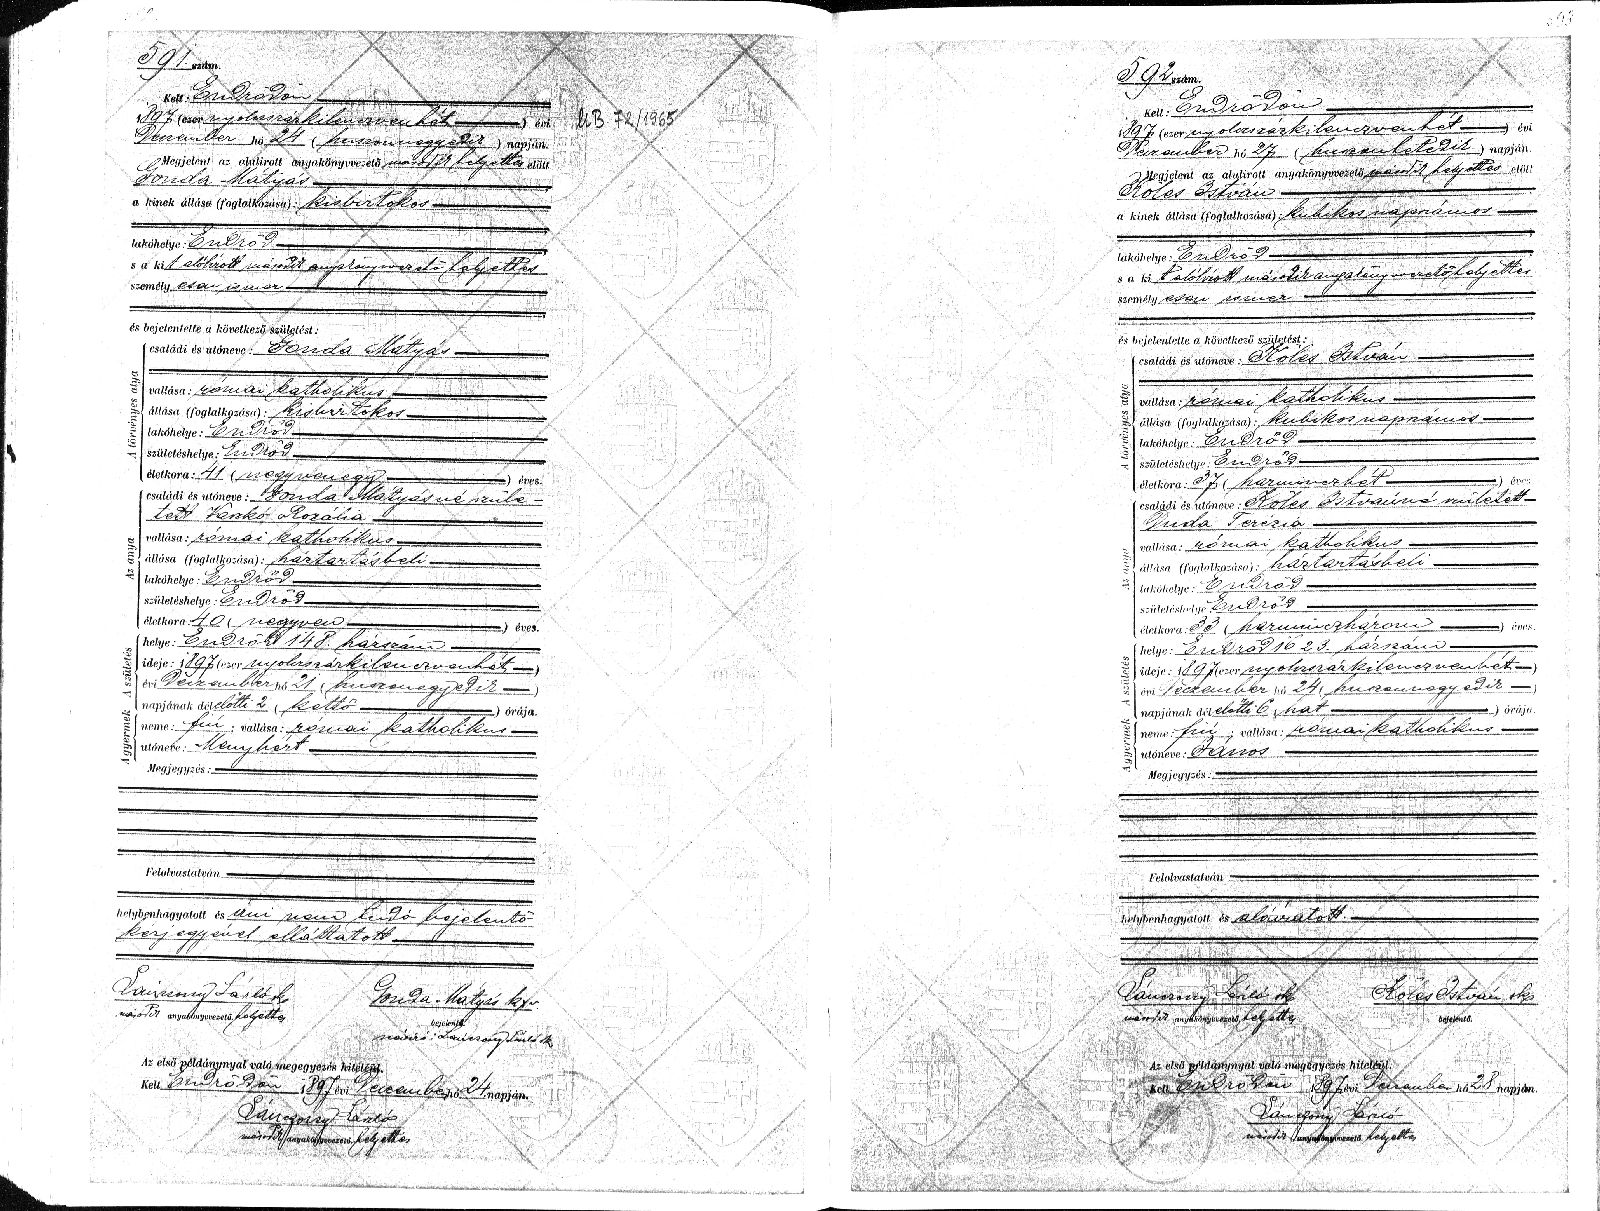 591. szám.
Kelt: Endrődön
1897 (ezer nyolcszázkilenczvenhét) évi
December hó 24 (huszonnegyedik) napján.
Megjelent az alulirott anyakönyvvezető második helyettes előtt
Gonda Mátyás
a kinek állása (foglalkozása): kisbirtokos
lakóhelye: Endrőd
s a kit alólirott második anyakönyvvezető helyettes
személyesen ismer
és bejelentette a következő születést:
A törvényes atya
családi és utóneve: Gonda Mátyás
vallása: római katholikus
állása (foglalkozása): kisbirtokos
lakóhelye: Endrőd
születéshelye: Endrőd
életkora: 41 (negyvenegy) éves.
Az anya
családi és utóneve: Gonda Mátyásné szüle-
tett Vaskó Rozália
vallása: római katholikus
állása (foglalkozása): háztartásbeli
lakóhelye: Endrőd
születéshelye: Endrőd
életkora: 40 (negyven) éves.
A születés
helye: Endrőd 148. házszám
ideje: 1897 (ezer nyolcszázkilenczvenhét)
évi Deczember hó 21 (huszonegyedik)
napjának délelőtti 2 (kettő) órája.
A gyermek
neme: fiú; vallása: római katholikus
utóneve: Menyhért
Megjegyzés:
Felolvastatván
helybenhagyatott és irni nem tudó bejelentő
kézjegyével elláttatott
Lánczony László sk. Gonda Mátyás kzjv.
második anyakönyvvezető helyettes bejelentő.
névíró: Lánczony László sk
Az első példánynyal való megegyezés hiteléül.
Kelt Endrődön 1897 évi December hó 24 napján.
Lánczony László
második anyakönyvvezető helyettes
UB 72/1965
592 szám.
Kelt: Endrődön
1897 (ezer nyolcszázkilenczvenhét) évi
Deczember hó 27 (huszonhetedik) napján.
Megjelent az alulirott anyakönyvvezető második helyettes előtt
Kóles István
a kinek állása (foglalkozása): kubikos napszámos
lakóhelye: Endrőd
s a kit alólirott második anyakönyvvezető helyettes
személyesen ismer
és bejelentette a következő születést:
A törvényes atya
családi és utóneve: Kóles István
vallása: római katholikus
állása (foglalkozása): kubikos napszámos
lakóhelye: Endrőd
születéshelye: Endrőd
életkora: 37 (harminczhét) éves.
Az anya
családi és utóneve: Kóles Istvánné született
Duda Terézia
vallása: római katholikus
állása (foglalkozása): háztartásbeli
lakóhelye: Endrőd
születéshelye: Endrőd
életkora: 33 (harminczhárom) éves.
A születés
helye: Endrőd 1623. házszám
ideje: 1897 (ezer nyolcszázkilenczvenhét)
évi Deczember hó 24 (huszonnegyedik)
napjának délelőtti 6 (hat) órája.
A gyermek
neme: fiú; vallása: római katholikus
utóneve: János
Megjegyzés:
Felolvastatván
helybenhagyatott és aláiratott.
Lánczony László sk Kóles István sk.
második anyakönyvvezető helyettes bejelentő.
Az első példánynyal való megegyezés hiteléül.
Kelt Endrődön 1897 évi Deczember hó 28 napján.
Lánczony László
második anyakönyvvezető helyettes